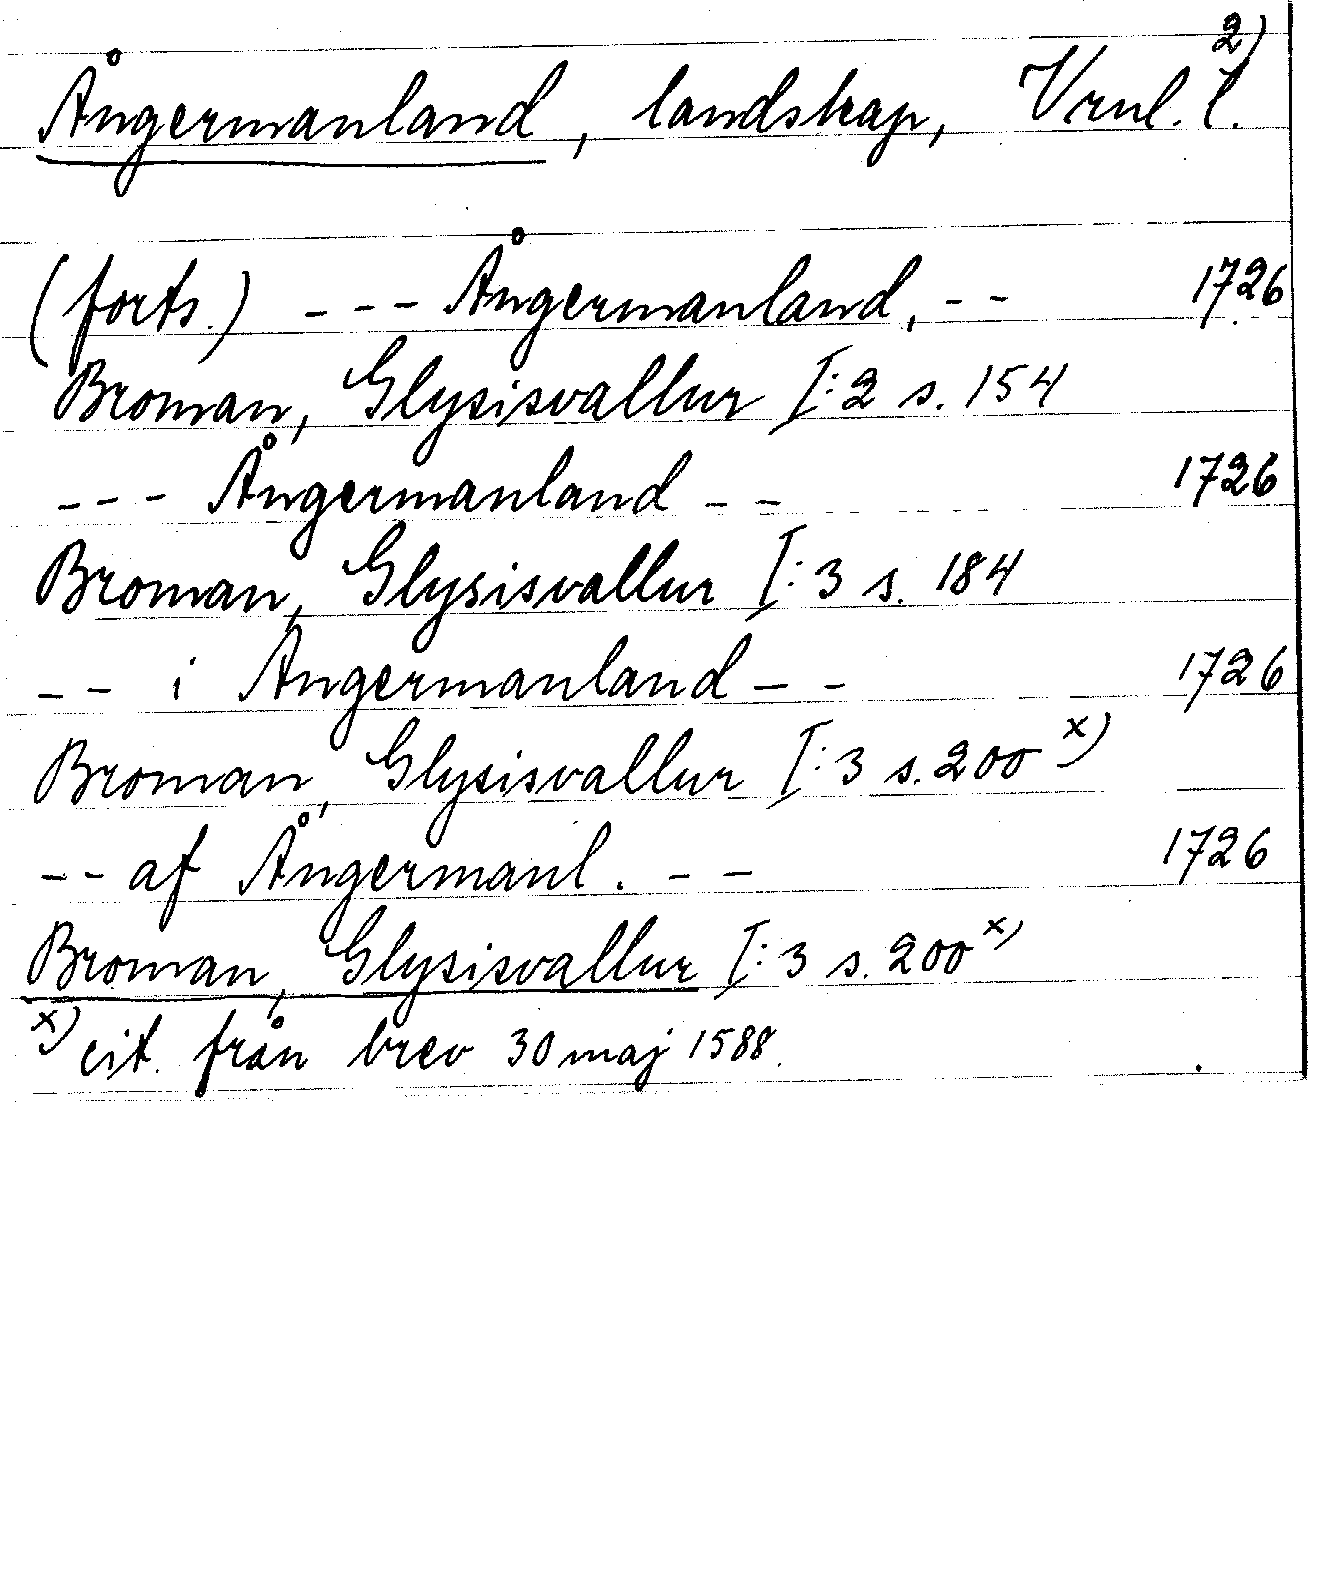 2)
Ångermanland, landskap, Vrnl. l.
(forts.) --- Ångermanland, -- 1726
Broman, Glysisvallur I:2 s. 154
--- Ångermanland -- 1726
Broman, Glysisvallur I:3 s. 184
-- i Ångermanland -- 1726
Broman, Glysisvallur I:3 s. 200 x)
-- af Ångermanl. -- 1726
Broman, Glysisvallur I:3 s. 200 x)
x) cit. från brev 30 maj 1588.